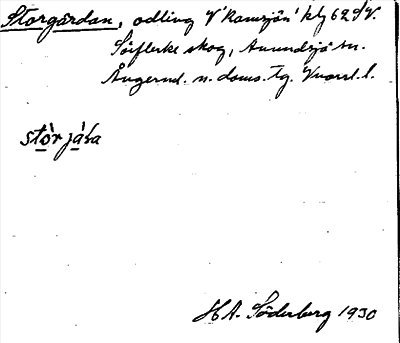 Storgärdan, odling V Ramsjön klj 62 S/V.
Sörflärke skog, Anundsjö sn.
Ångermd. n. doms. tg. Vnorrl. l.
HA. Söderberg 1930